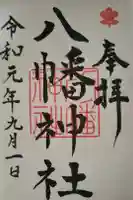 奉拝
八幡神社
令和元年九月一日